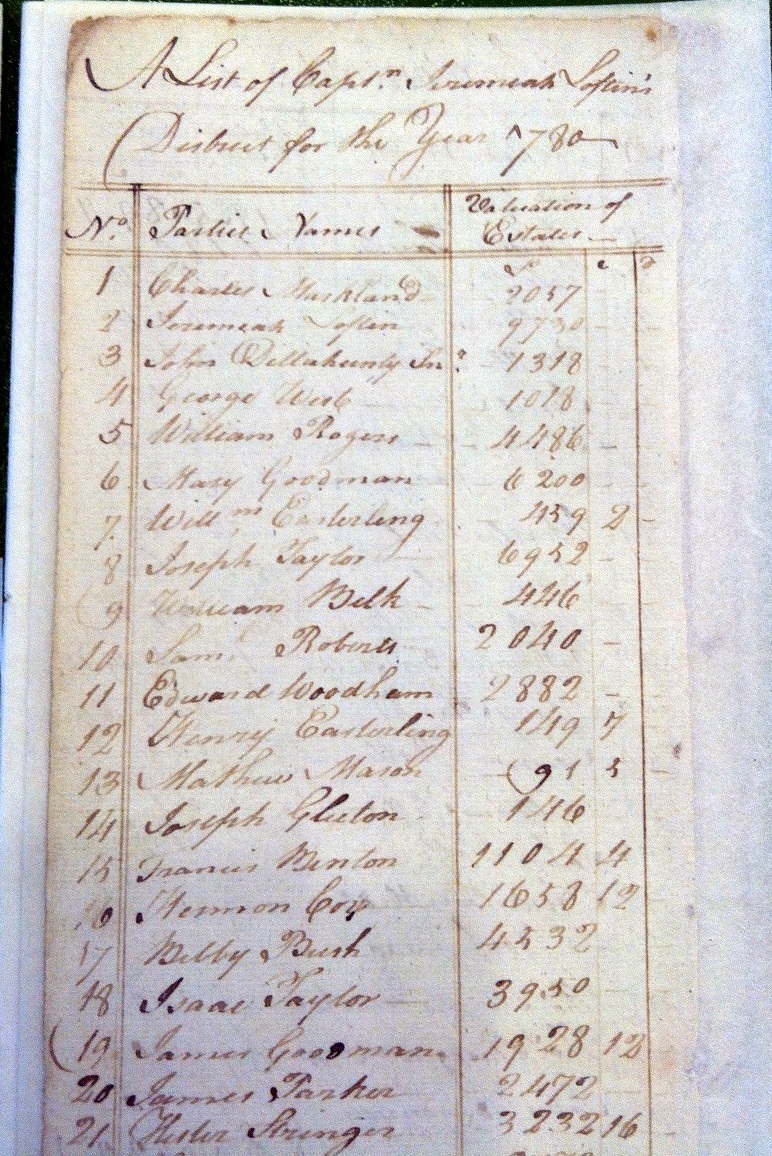 A List of Captn. Jeremiah Loftin's
District for the Year 1780
No. Parties Names Valuation of
Estates
£ s d
1 Charles Markland 2057
2 Jeremiah Loftin 9730
3 John Dillahunty Snr. 1318
4 George West 1018
5 William Rogers 4486
6 Mary Goodman 6200
7 Willms Easterling 459 2
8 Joseph Taylor 6952
9 William Belk 446
10 Saml Roberts 2040
11 Edward Woodham 2882
12 Henry Easterling 149 7
13 Mathew Mason 91 5
14 Joseph Gleeton 146
15 Francis Benton 1104 4
16 Hermon Cox 1658 12
17 Bilby Bush 4532
18 Isaac Taylor 3950
19 James Goodman 1928 12
20 James Parker 2472
21 Hester Stringer 3232 16